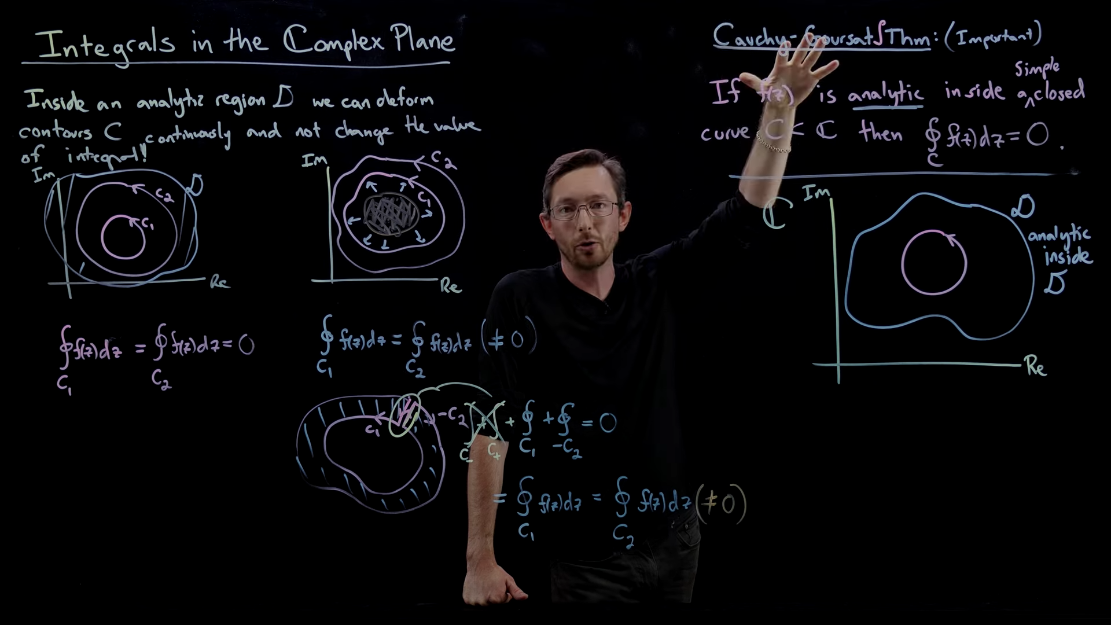 Integrals in the Complex Plane
Inside an analytic region D we can deform
contours C continuously and not change the value
of integral!
Im
D
C₂
C₁
Re
∮f(z)dz = ∮f(z)dz = 0
C₁ C₂
Im
C₂
C₁
Re
∮f(z)dz = ∮f(z)dz (≠ 0)
C₁ C₂
C₁
-C₂
∫ + ∫ + ∮ + ∮ = 0
C₋ C₊ C₁ -C₂
= ∮f(z)dz = ∮f(z)dz (≠ 0)
C₁ C₂
Cauchy-Goursat ∫Thm: (Important)
Simple
If f(z) is analytic inside a closed
curve C < ℂ then ∮f(z)dz = 0.
C
ℂ
Im
D
analytic
inside
D
Re